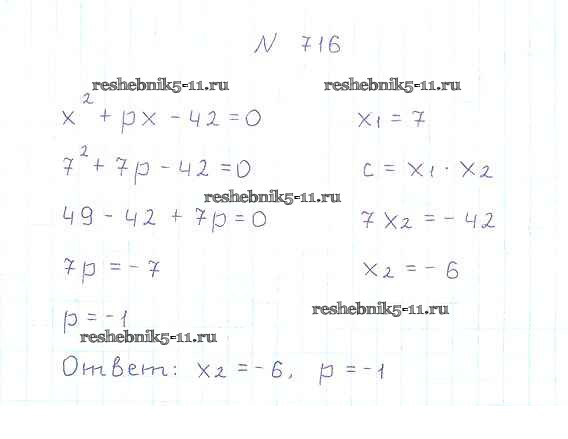 N 716
reshebnik5-11.ru reshebnik5-11.ru
x² + px - 42 = 0 x₁ = 7
7² + 7p - 42 = 0 c = x₁ · x₂
reshebnik5-11.ru
49 - 42 + 7p = 0 7x₂ = - 42
7p = - 7 x₂ = - 6
reshebnik5-11.ru
p = -1
reshebnik5-11.ru
Ответ: x₂ = - 6, p = -1